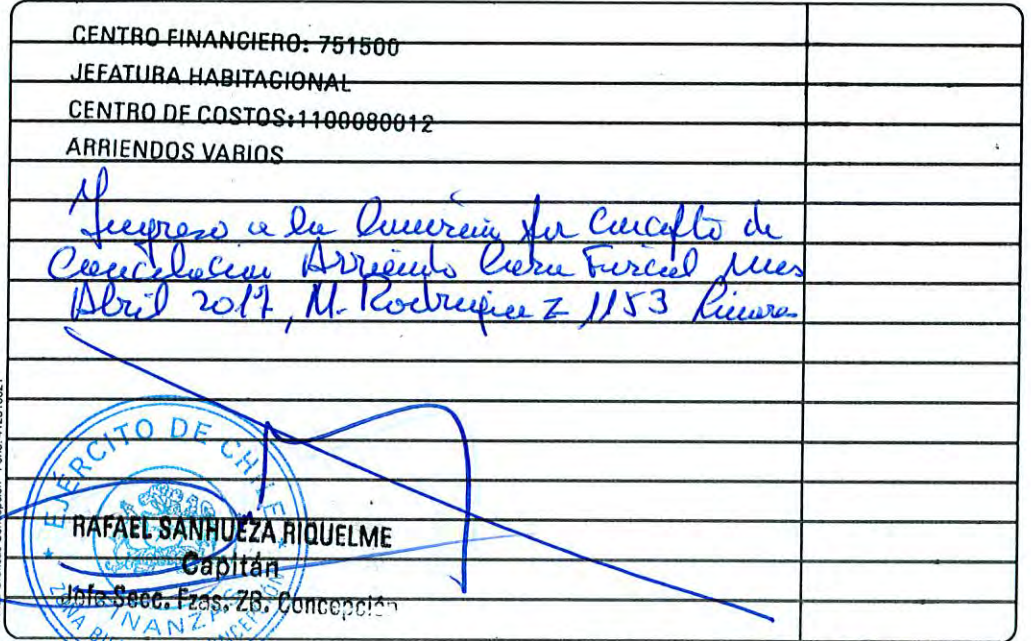 CENTRO FINANCIERO: 751500
JEFATURA HABITACIONAL
CENTRO DE COSTOS:1100080012
ARRIENDOS VARIOS
Ingreso a la por Concepto de
Cancelacion Arriendo Casa Fiscal Mes
Abril 2017, M. Rodriguez 1153 Linares
EJÉRCITO DE CHILE
RAFAEL SANHUEZA RIQUELME
Capitán
Jefe Secc. Fzas. ZB. Concepción
FINANZAS